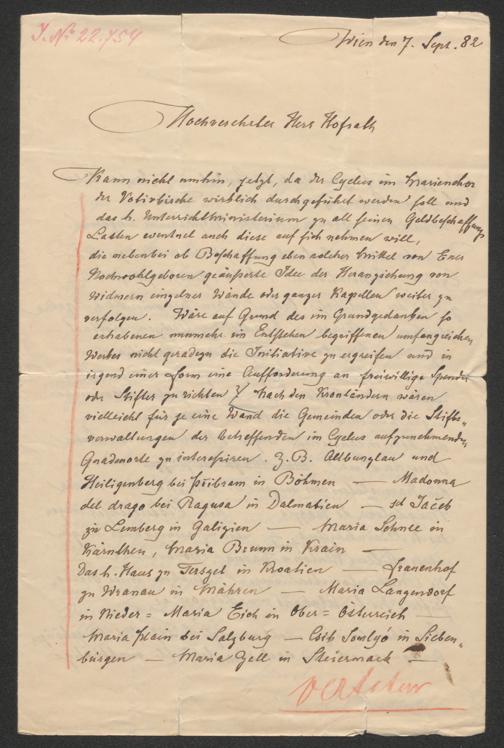 J. № 22.754
Wien den 7. Sept. 82
Hochverehrter Herr Hofrath
Kann nicht umhin, jetzt, da der Cyclus im Marienchor
der Votivkirche wirklich durchgeführt werden soll und
das h. Unterrichtsministerium zu all seinen Geldbeschaffungs
Lasten eventuel auch diese auf sich nehmen will,
die nebenbei ob Beschaffung eben solcher Mittel von Euer
Hochwohlgeboren geäusserte Idee der Heranziehung von
Widmern einzelner Wände oder ganzer Kapellen weiter zu
verfolgen. Wäre auf Grund des im Grundgedanken so
erhabenen nunmehr im Entstehen begriffenen umfangreichen
Werkes nicht geradezu die Initiative zu ergreifen und in
irgend einer Form eine Aufforderung an freiwillige Spender
oder Stifter zu richten? Nach den Kronländern wären
vielleicht für je eine Wand die Gemeinden oder die Stifts-
verwaltungen der betreffenden im Cyclus aufzunehmenden
Gnadenorte zu interessiren. Z.B. Altbunzlau und
Heiligenberg bei Pribram in Böhmen — Madonna
del drago bei Ragusa in Dalmatien — st Jacob
zu Lemberg in Galizien — Maria Schnee in
Kärnthen, Maria Brunn in Krain —
das h. Haus zu Tersect in Kroatien — Frauenhof
zu Wranau in Mähren — Maria Langendorf
in Nieder= Maria Eich in Ober=Österreich —
Maria Plain bei Salzburg — Csik Somlyo in Sieben-
bürgen — Maria Zell in Steiermark —